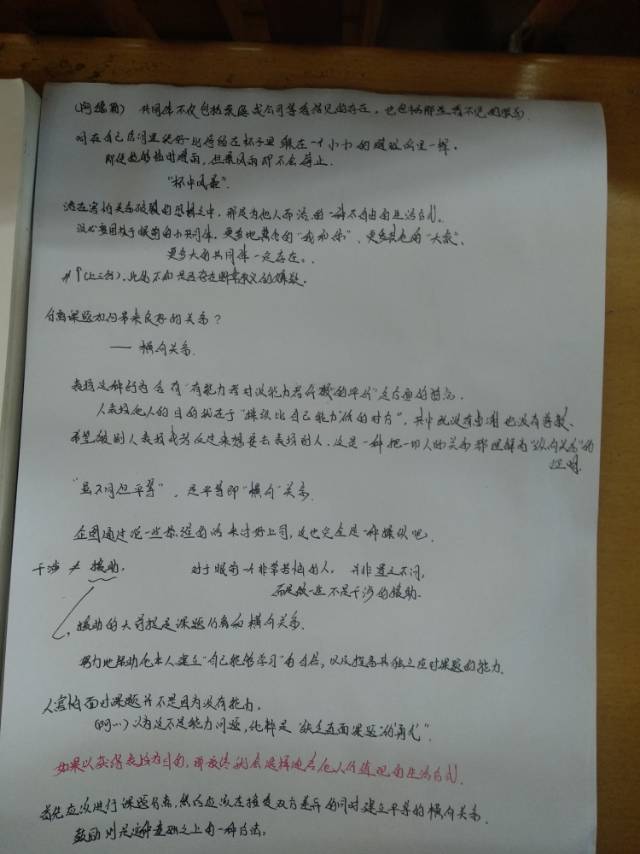 (阿德勒) 共同体不仅包括家庭或公司等看得见的存在,也包括那些看不见的联系
即使能够暂时避雨,但暴风雨却不会停止.
"杯中风暴".
活在害怕关系破裂的恐惧之中,那是为他人而活的一种不自由的生活方式。
没必要固执于眼前的小共同体,更多地其他的"我和你"、更多其他的"大家"、
更多大的共同体一定存在。
分离课题如何带来良好的关系?
—— 横向关系.
表扬这种行为含有"有能力者对没能力者所做的评价"这方面的特点。
人表扬他人的目的就在于"操纵比自己能力低的对方",其中既没有感谢也没有尊敬、
希望被别人表扬或者反过来想要去表扬别人,这是一种把一切人际关系都理解为"纵向关系"的
证明
"虽不同但平等",是平等即"横向"关系.
企图通过说一些恭维的话来讨好上司,这也完全是一种操纵吧.
干涉 ≠ 援助.
对于眼前一个非常苦恼的人,并非置之不问,
而是做一些不是干涉的援助.
援助的大前提是课题分离和横向关系.
努力地帮助他本人建立"自己能够学习"的自信,以及提高其独立应对课题的能力.
人害怕面对课题并不是因为没有能力,
认为这不是能力问题,纯粹是"缺乏直面课题"的"勇气".
如果以获得表扬为目的,那最终就会选择迎合他人价值观的生活方式.
首先应该进行课题分离,然后应该在接受双方差异的同时建立平等的横向关系.
鼓励则是这种基础之上的一种方法。